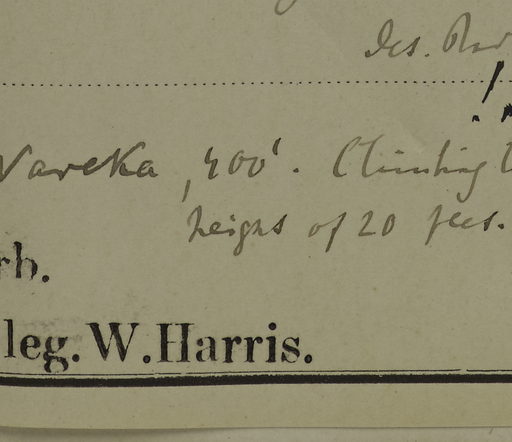 Wareka, 400'. Climbing
height of 20 feet.
rb.
leg. W. Harris.